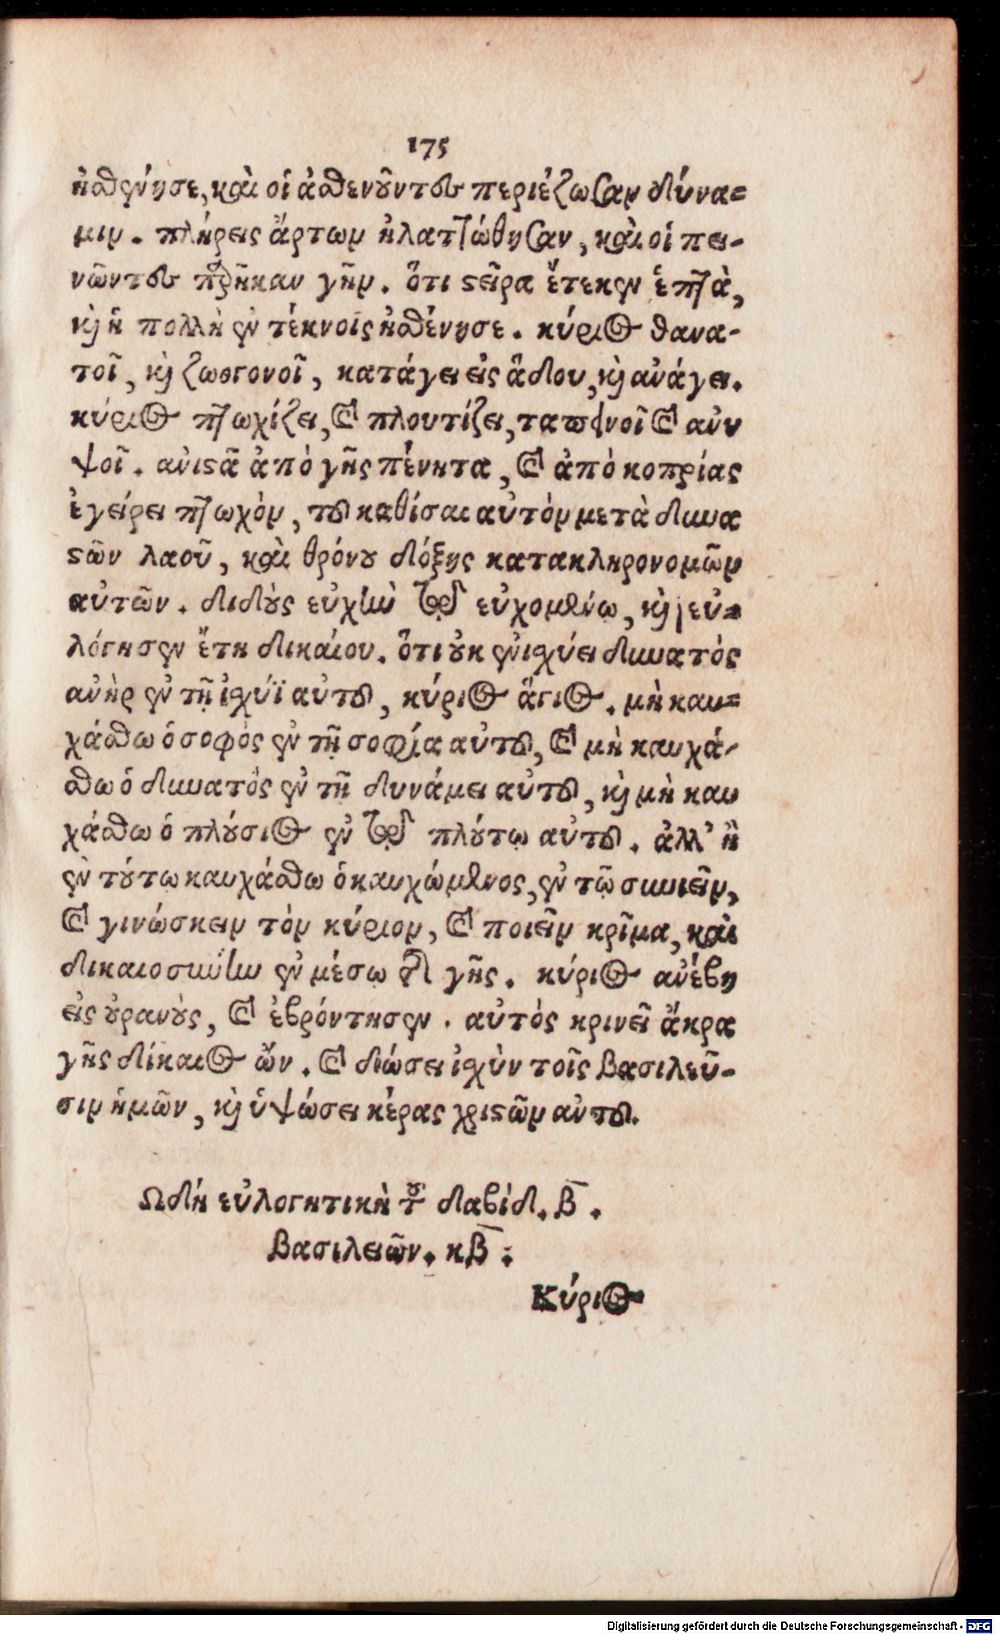 175
ἠσθένησε, καὶ οἱ ἀσθενοῦντες περιέζωσαν δύνα-
μιν. πλήρεις ἄρτων ἠλαττώθησαν, καὶ οἱ πει-
νῶντες παρῆκαν γῆν. ὅτι στεῖρα ἔτεκεν ἑπτὰ,
καὶ ἡ πολλὴ ἐν τέκνοις ἠσθένησε. κύριος θανα-
τοῖ, καὶ ζωογονοῖ, κατάγει εἰς ᾅδου, καὶ ἀνάγει.
κύριος πτωχίζει, καὶ πλουτίζει, ταπεινοῖ καὶ ἀνυ
ψοῖ. ἀνιστᾶ ἀπὸ γῆς πένητα, καὶ ἀπὸ κοπρίας
ἐγείρει πτωχὸν, τοῦ καθίσαι αὐτὸν μετὰ δυνα
στῶν λαοῦ, καὶ θρόνου δόξης κατακληρονομῶν
αὐτῶν. διδοὺς εὐχὴν τῷ εὐχομένῳ, καὶ εὐ-
λόγησεν ἔτη δικαίου. ὅτι οὐκ ἐνισχύει δυνατὸς
ἀνὴρ ἐν τῇ ἰσχύϊ αὐτοῦ, κύριος ἅγιος. μὴ καυ-
χάσθω ὁ σοφὸς ἐν τῇ σοφίᾳ αὐτοῦ, καὶ μὴ καυχά-
σθω ὁ δυνατὸς ἐν τῇ δυνάμει αὐτοῦ, καὶ μὴ καυ
χάσθω ὁ πλούσιος ἐν τῷ πλούτῳ αὐτοῦ. ἀλλ' ἢ
ἐν τούτω καυχάσθω ὁ καυχώμενος, ἐν τῷ συνιεῖν,
καὶ γινώσκειν τὸν κύριον, καὶ ποιεῖν κρῖμα, καὶ
δικαιοσύνην ἐν μέσω τῆς γῆς. κύριος ἀνέβη
εἰς οὐρανοὺς, καὶ ἐβρόντησεν. αὐτὸς κρινεῖ ἄκρα
γῆς δίκαιος ὤν. καὶ δώσει ἰσχὺν τοῖς βασιλεῦ-
σιν ἡμῶν, καὶ ὑψώσει κέρας χριστῶν αὐτοῦ.
Ωδὴ εὐλογητικὴ τοῦ δαβίδ. β.
Βασιλειῶν. κβ.
Κύριος